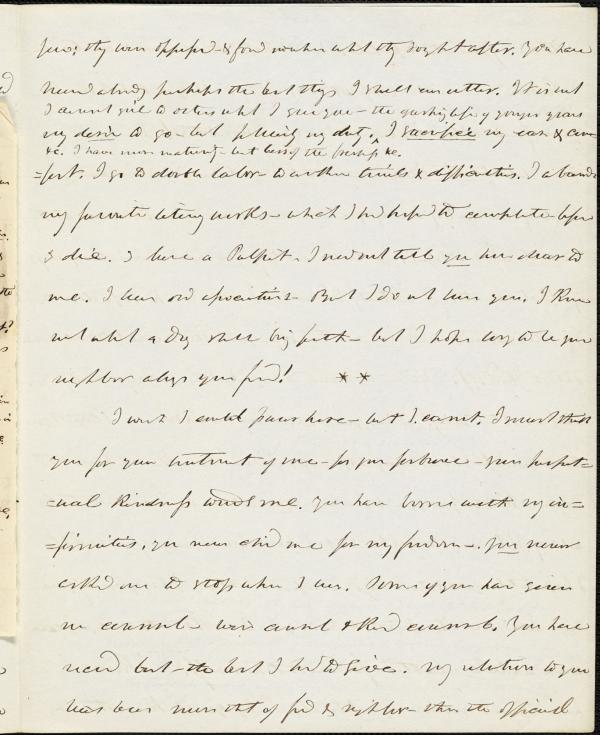 few; they were opposed - & found no when what they sought after. You have
heard already perhaps the best things I shall ever utter. It is not
I cannot give to others what I gave you - the gushing life of younger years
my desire to go - but following my duty, I sacrifice my ease & com
&c. I have more maturity - but less of the freshness &c.
=fort. I go to double labor - to a thousand trials & difficulties. I abandon
my favorite literary works - which I had hoped to complete before
I die. I leave a Pulpit - I need not tell you how dear to
me. I leave old associations - But I do not leave you. I know
not what a day shall bring forth - but I hope long to be your
neighbor always your friend! * *
I wish I could pause here - but I cannot. I must thank
you for your treatment of me - for your forbearance - your perpet-
=ual kindness towards me. You have borne with my in=
=firmities. You never chid me for my freedom -. You never
asked me to stop when I was. Some of you have given
me counsel - wise counsel & kind counsels. You have
heard but - the best I had to give. My relation to you
has been more that of friend & neighbor - than the official